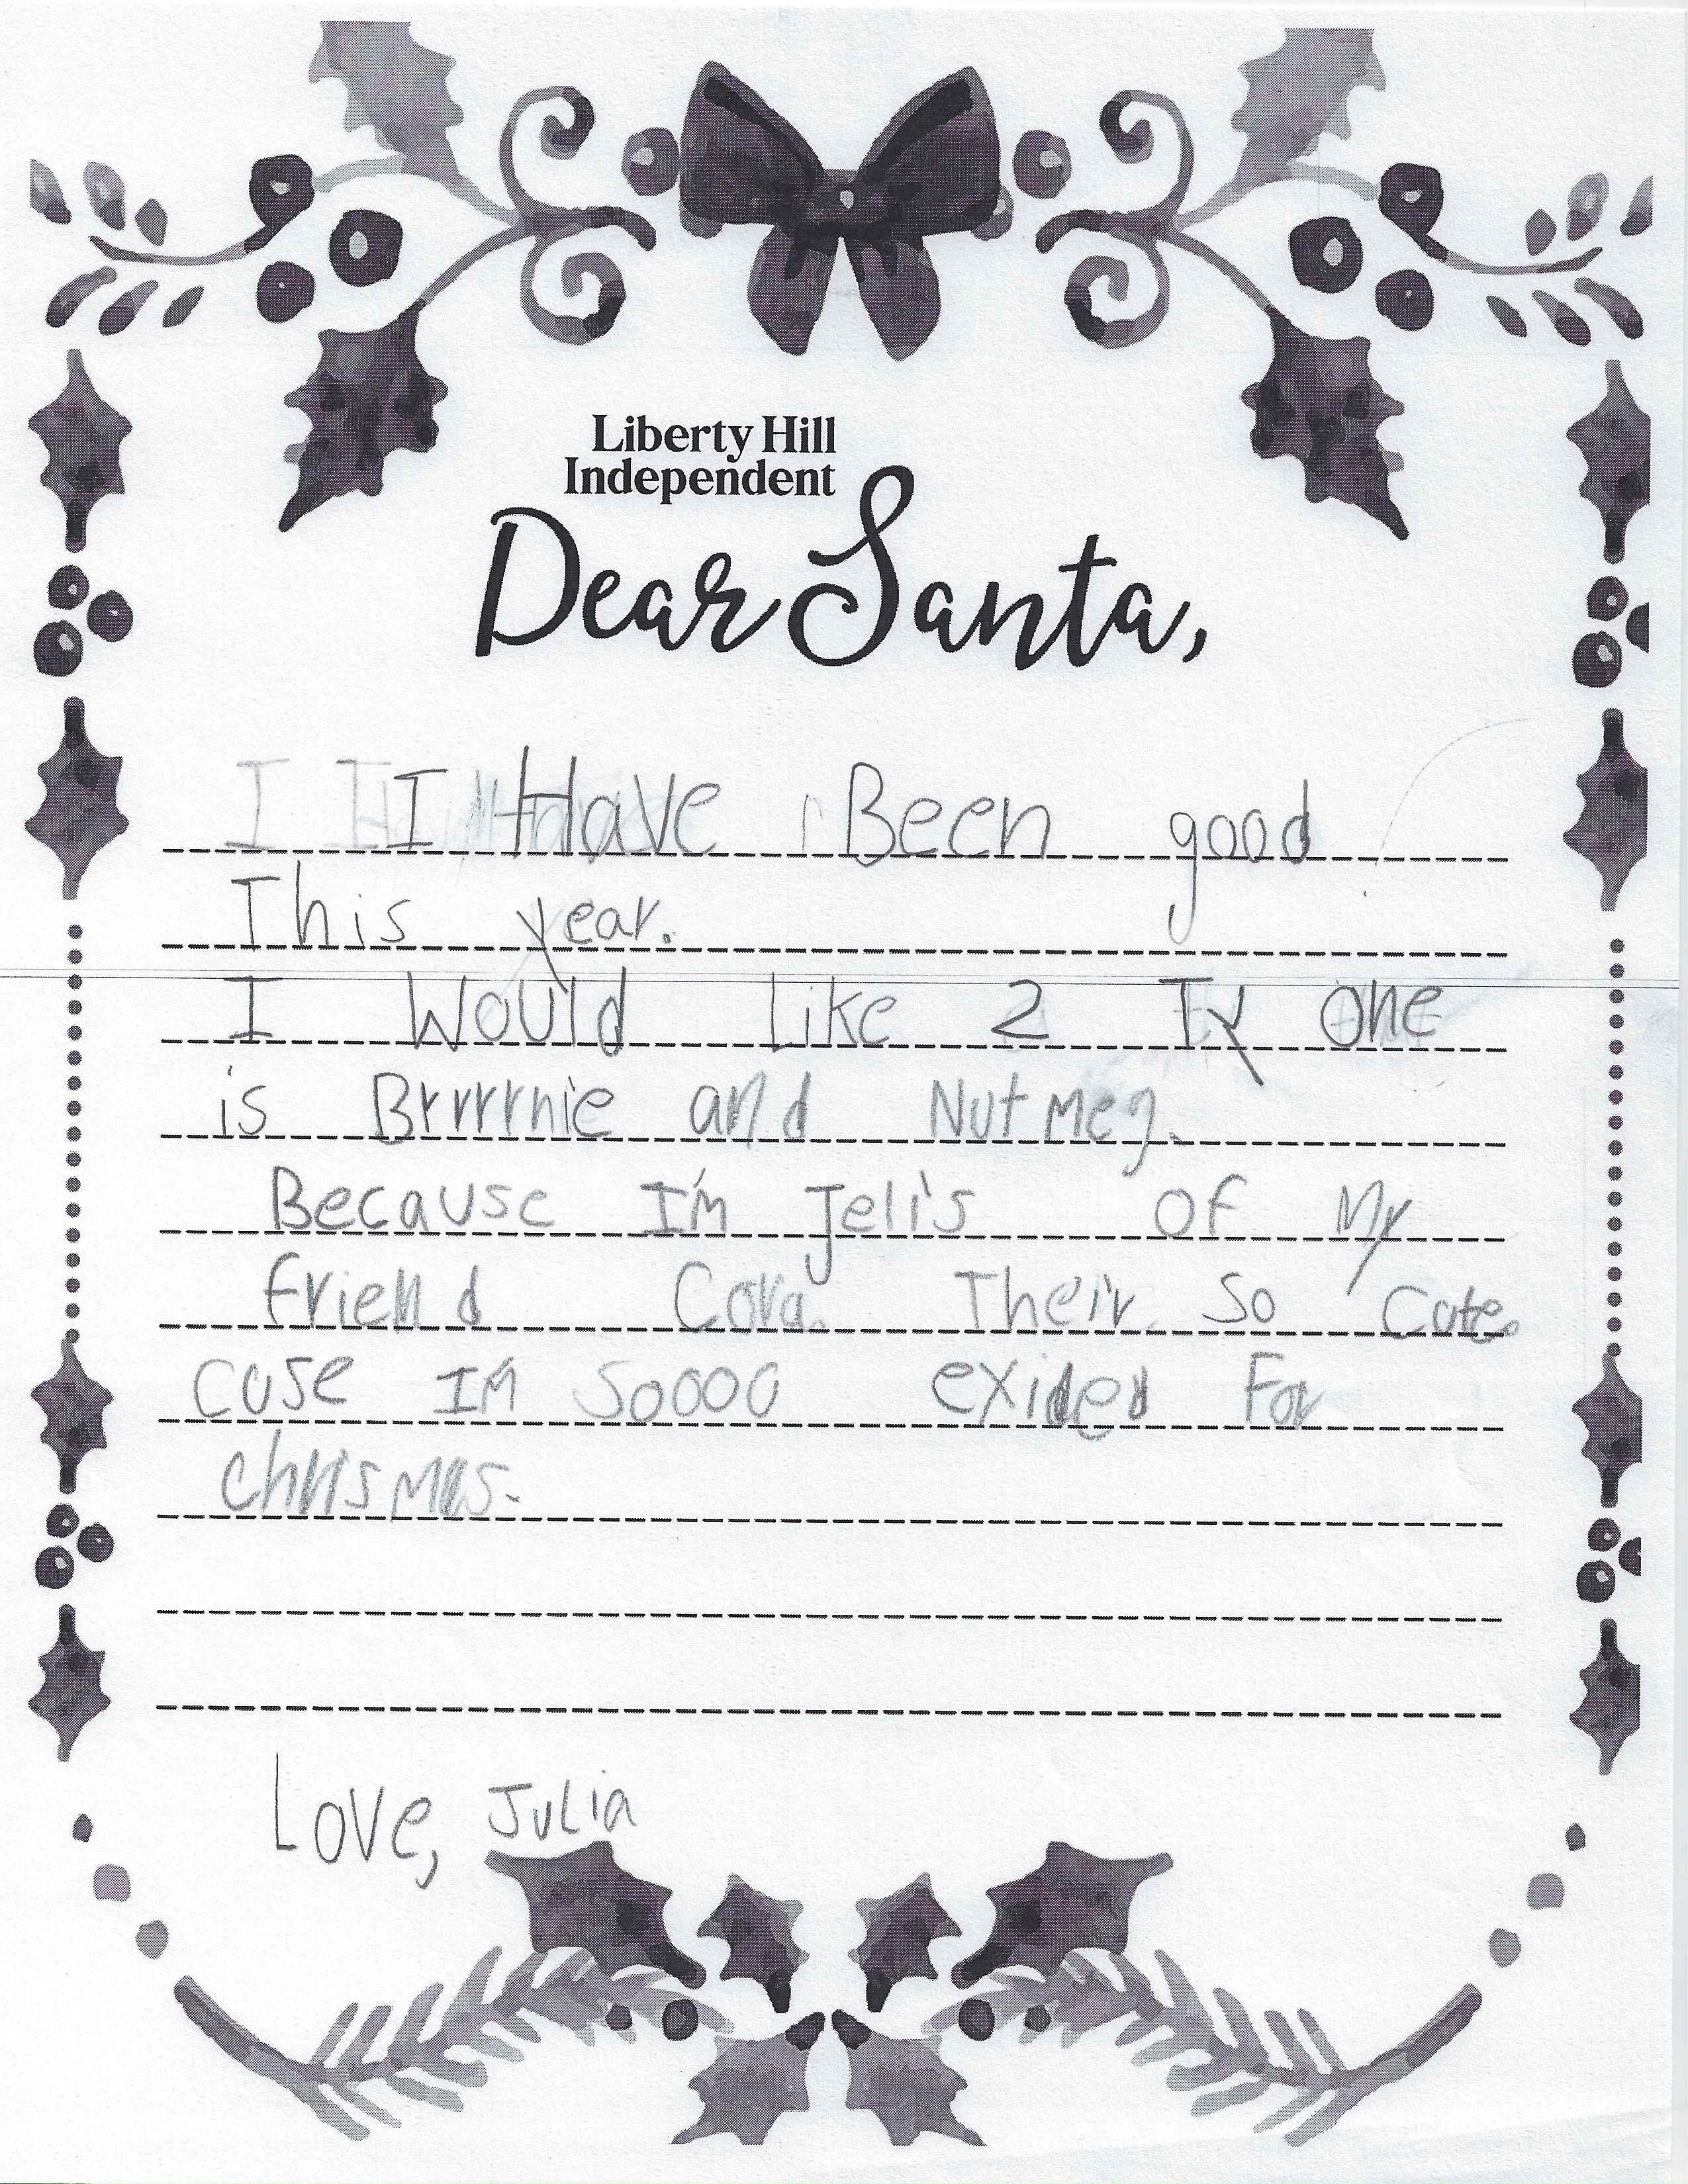 Liberty Hill
Independent
Dear Santa,
I I I Have Been good
This year.
I Would Like 2 Ty one
is Brrrrnie and Nutmeg.
Because I'm Jelis of My
friend Cora. Their so Cute.
cuse I'M Soooo exided For
chrismas.
Love, Julia